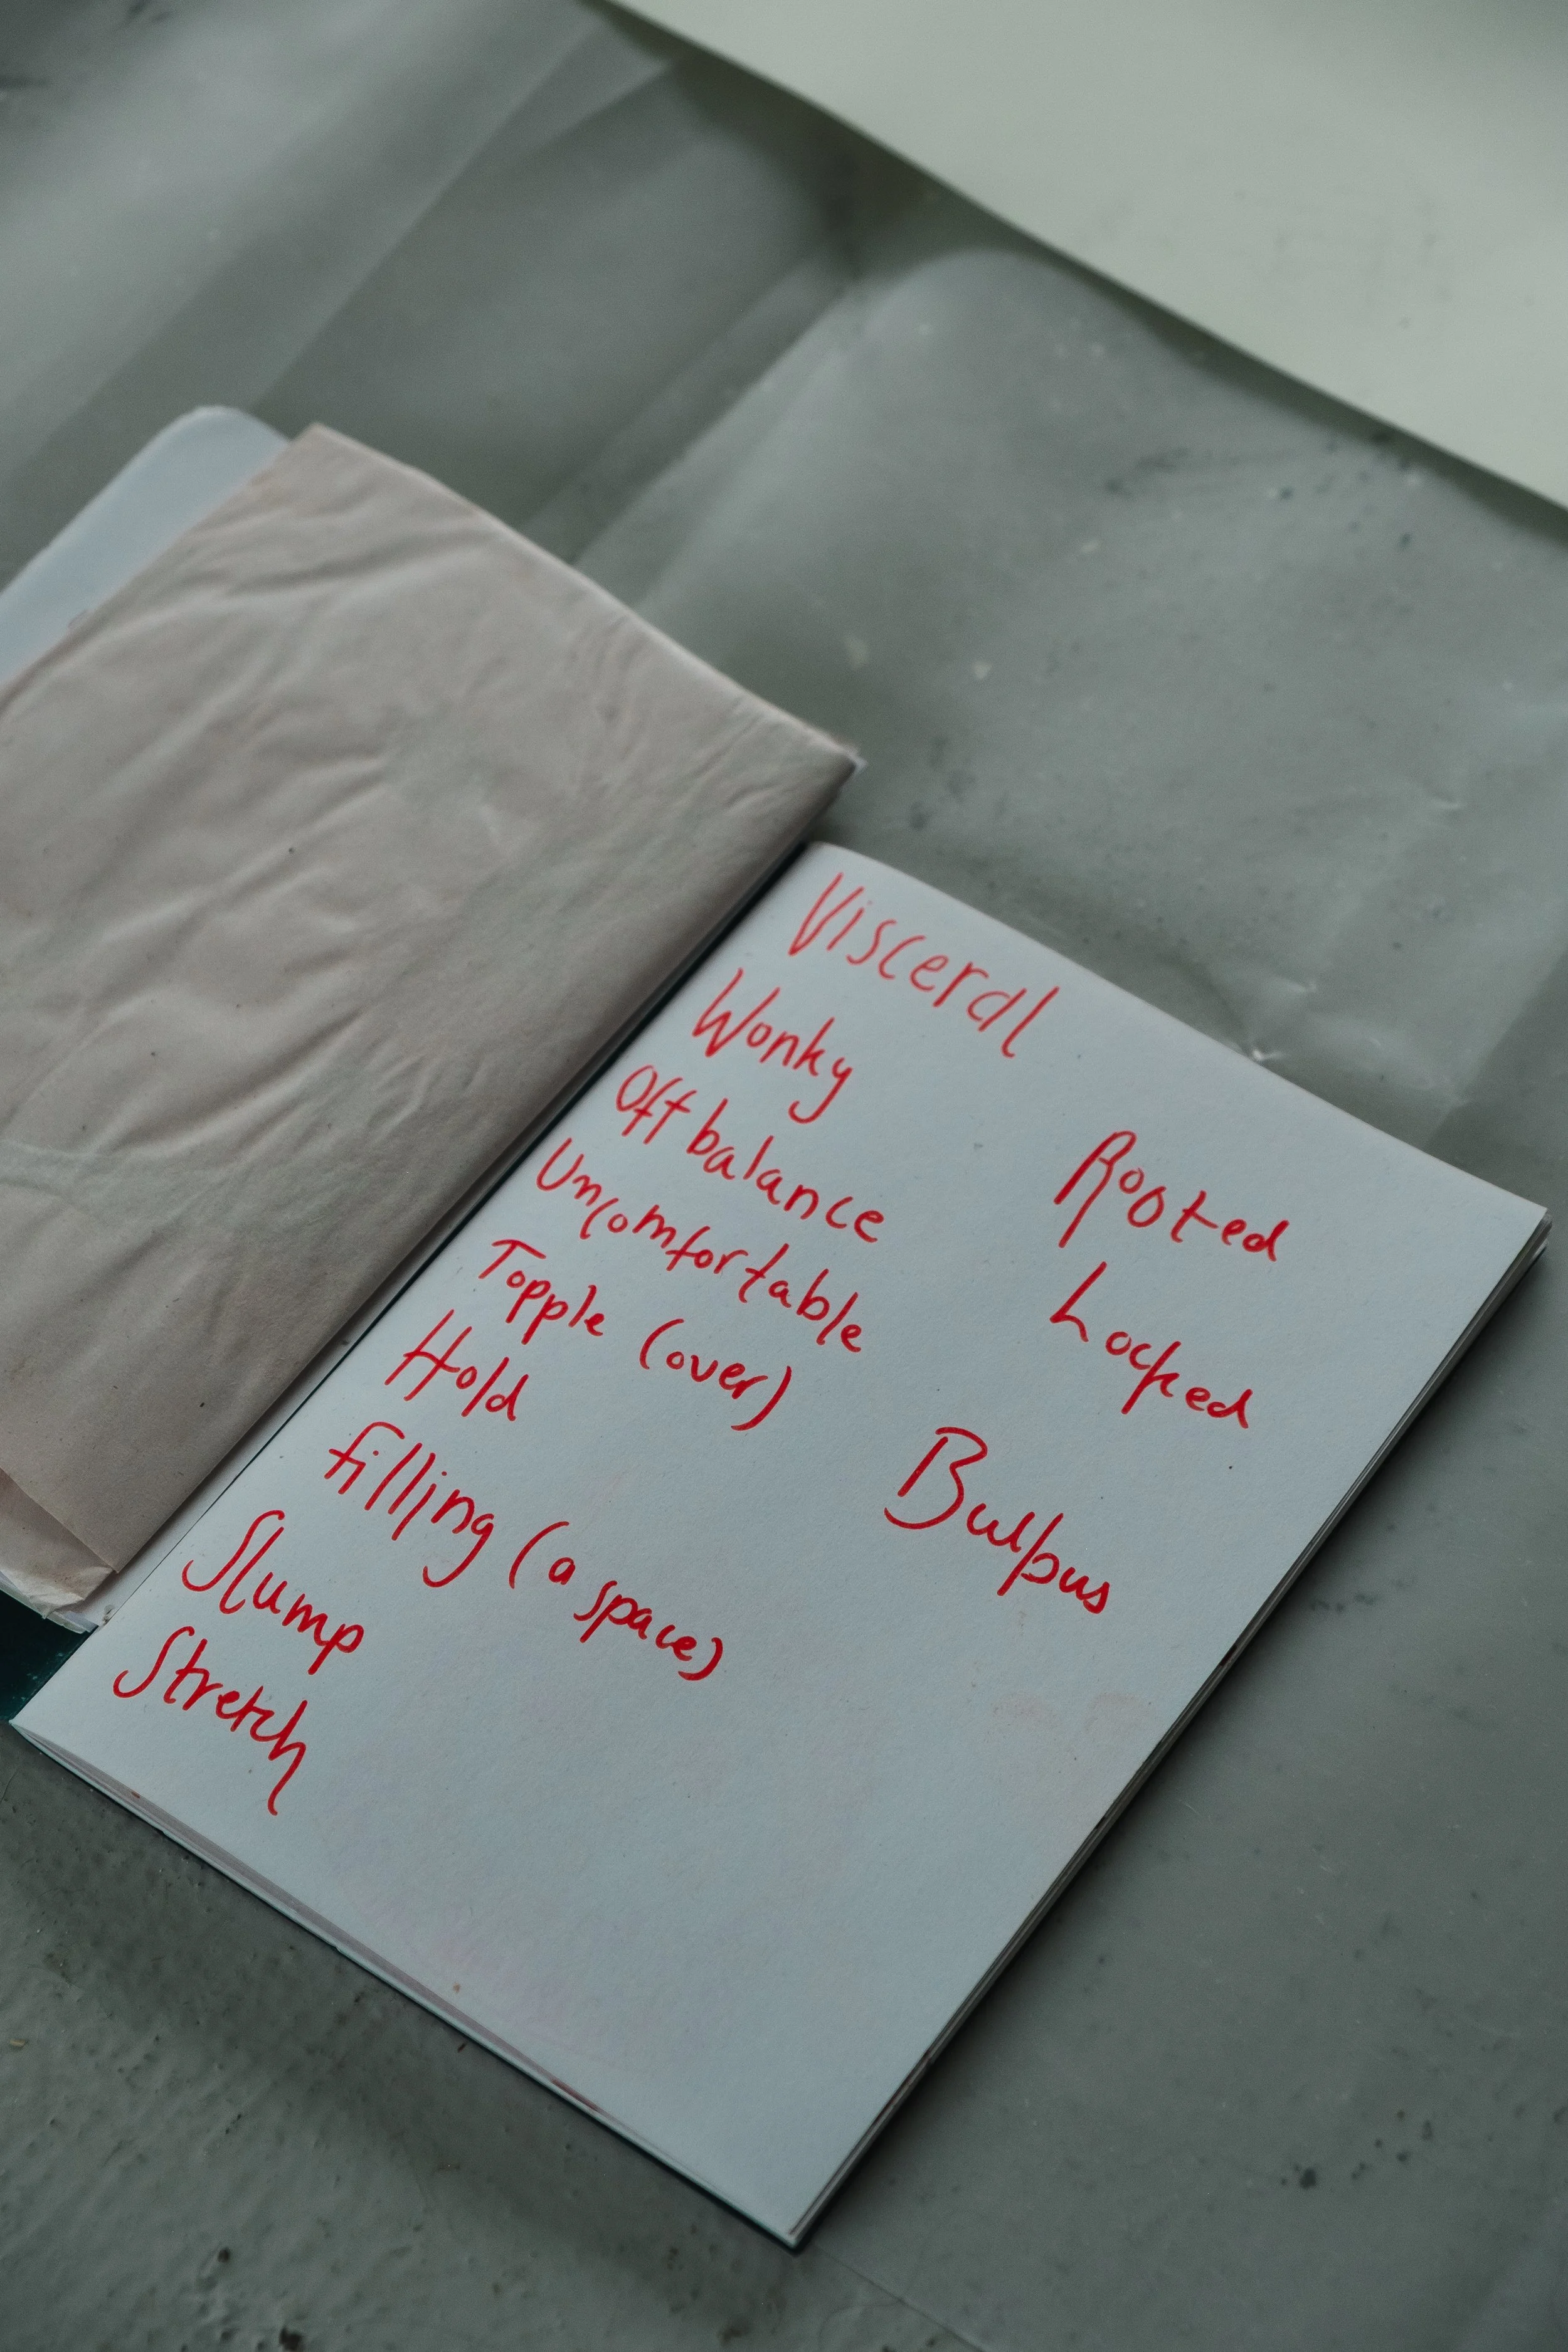 Visceral
Wonky
Off balance
Uncomfortable
Topple (over)
Hold
filling (a space)
Slump
Stretch
Rooted
Locked
Bulbus